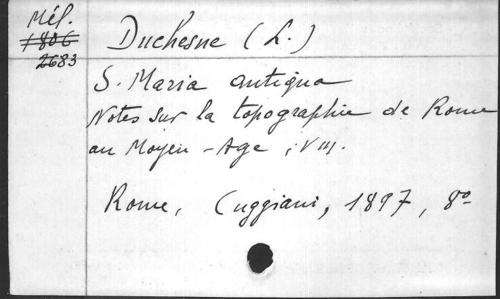 Mél.
1806
2683
Duchesne (L.)
S. Maria antiqua
Notes sur la topographie de Rome
au Moyen-Age, VIII.
Rome, Cuggiani, 1897, 8º